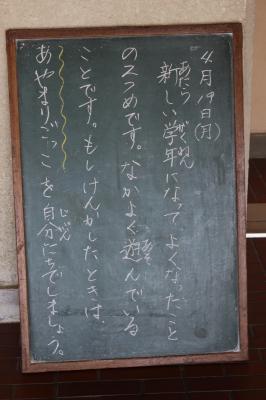 4月19日(月)
新しい学年になってよくなったこと
あたら がく ねん
の入つめです。なかよく遊んでいる
あそ
ことです。もしけんかしたときは、
あやまりごっこを自分たちでしましょう。
じぶん